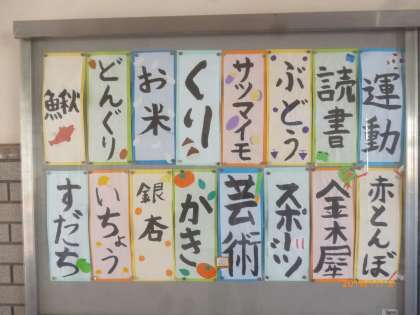 運動
読書
ぶどう
サツマイモ
くり
お米
どんぐり
鰍
赤とんぼ
金木犀
スポーツ
芸術
かき
銀杏
いちょう
すだち